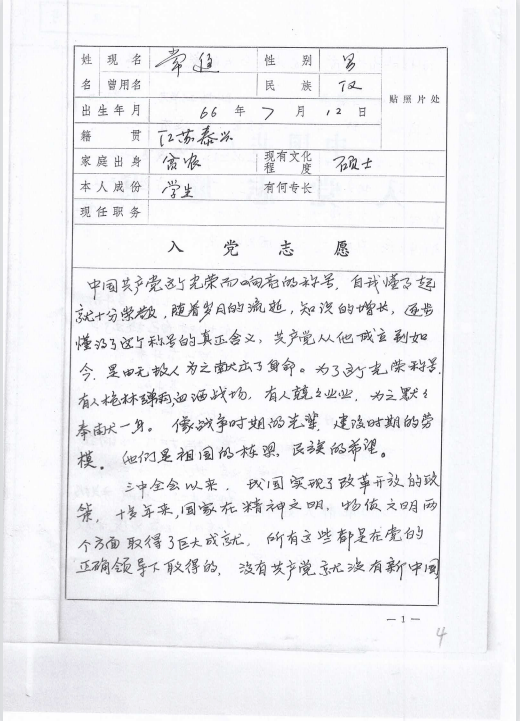 姓 现名 常 性别 男
名 曾用名 民族 汉 贴照片处
出生年月 66年7月12日
籍贯 江苏泰兴
家庭出身 富农 现有文化程度 硕士
本人成份 学生 有何专长
现任职务
入党志愿
中国共产党这个光荣而响亮的称号，自我懂事起
就十分崇敬，随着岁月的流逝，知识的增长，逐步
懂得了这个称号的真正含义，共产党从他成立到如
今，是由无数人为之献出了身命。为了这个光荣称号
有人枪林弹雨血洒战场，有人兢々业业，为之默々
奉献一身。像战争时期的先辈，建设时期的劳
模。他们是祖国的栋梁，民族的希望。
三中全会以来，我国实现了改革开放的政
策，十多年来，国家在精神文明，物质文明两
个方面取得了巨大成就，所有这些都是在党的
正确领导下取得的，没有共产党就没有新中国
— 1 —
4